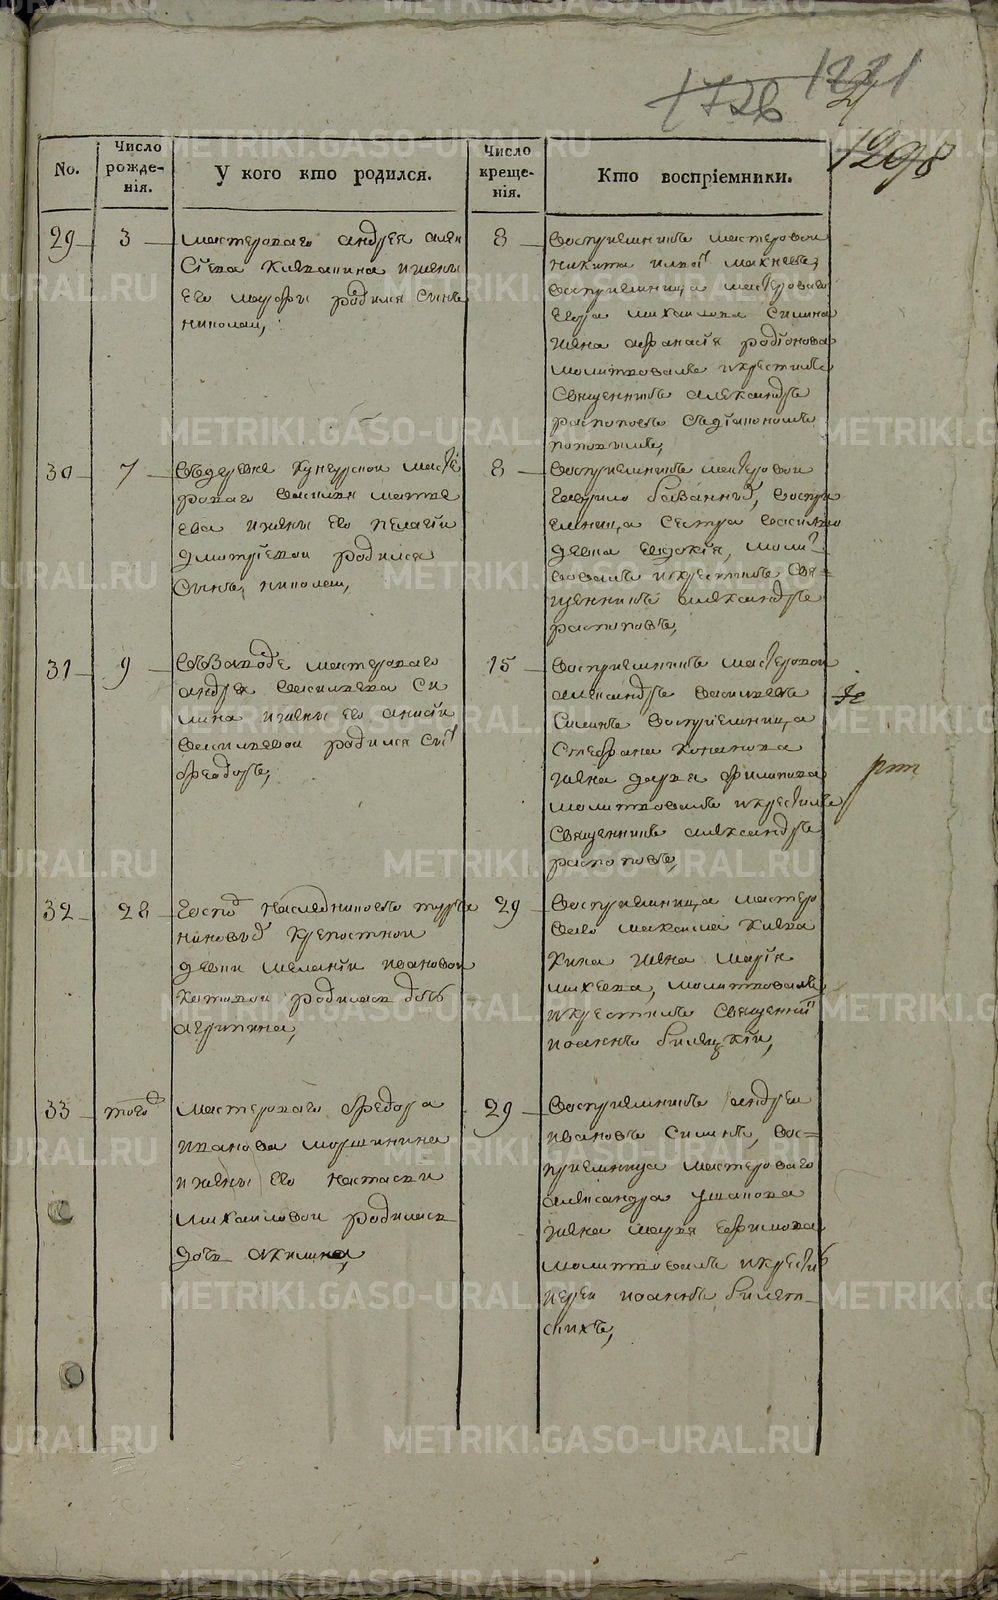 1726
1221
1298
No.
Число рожде-нія.
У кого кто родился.
Число креще-нія.
Кто воспріемники.
29
3
мастероваго андрея алек
сѣева клевакина и жены
его марфы родился сынъ
николай,
8
воспріемникъ мастеровой
никита
воспріемница мастероваго
егора михайлова силина
жена афанасія родіонова
молитвовалъ и крестилъ
священникъ александръ
распоповъ съ діакономъ
поповымъ,
30
7
въ деревнѣ кунгурской масте
роваго василья матве
ева и жены его пелагіи
дмитріевой родился
сынъ николай,
8
воспріемникъ мастеровой
гаврило воспрі
емница сестра василья
девка евдокія, молит
вовалъ и крестилъ свя=
щенникъ александръ
распоповъ,
31
9
въ заводѣ мастероваго
андрея васильева си
лина и жены его анисіи
васильевой родился сынъ
феодоръ,
15
воспріемникъ мастеровой
александръ васильевъ
силинъ воспріемница
стефана конанова
жена дарья филипова
молитвовалъ и крестилъ
священникъ александръ
распоповъ,
32
28
господ наследниковъ турча
ниновыхъ крепостной
девки меланіи ивановой
котовой родилась дочь
агрипина,
29
воспріемница мастеро
ваго максима клева
кина жена марія
михеева, молитвовалъ
и крестилъ священникъ
іоаннъ билецкій,
33
того
мастероваго феодора
иванова моршинина
и жены его настасьи
михайловой родилась
дочь акилина,
29
воспріемникъ андрей
ивановъ силинъ, вос=
пріемница мастероваго
александра ушакова
жена марья ефимова
молитвовалъ и крестилъ
іерей іоаннъ билет-
скихъ,
METRIKI.GASO-URAL.RU